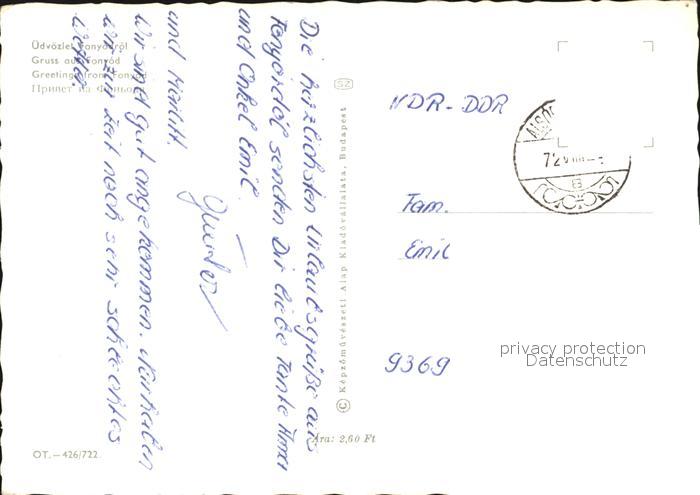 Üdvözlet Fonyódról
Gruss aus Fonyód
Greetings from Fonyód
Привет из Фоньода
Die herzlichsten Urlaubsgrüße aus
Fonyordól senden Dir liebe Tante
und Onkel Emil.
Günter
und
Wir sind gut angekommen.
wir zur Zeit noch sehr schlechtes
Wetter.
SZ
© Képzőművészeti Alap Kiadóvállalata, Budapest
Ára: 2,60 Ft
OT.—426/722
NDR-DDR
72
B
Fam.
Emil
9369
privacy protection
Datenschutz